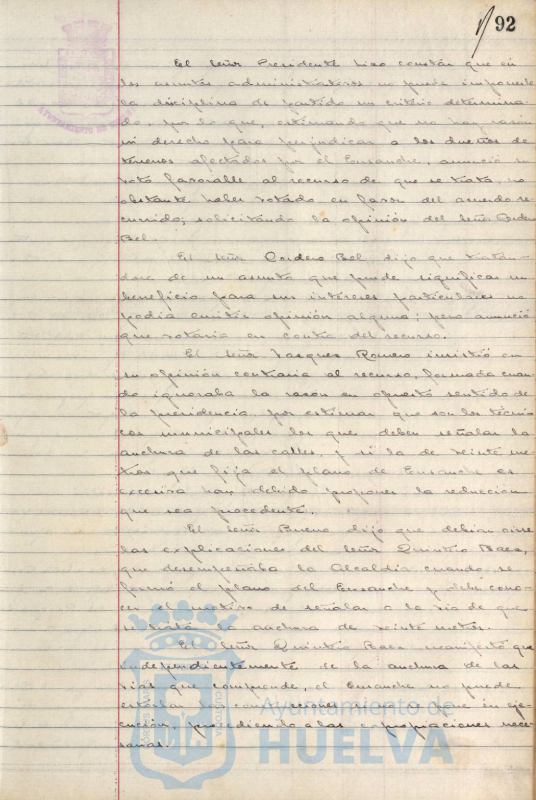 92
El Señor Presidente hizo constar que en
los asuntos administrativos no puede imponerse
la disciplina de partido un criterio determina-
do, por lo que, estimando que no hay razón
ni derecho para perjudicar a los dueños de
terrenos afectados por el Ensanche, anunció su
voto favorable al recurso de que se trata, no
obstante haber votado en favor del acuerdo re-
currido; solicitando la opinión del Señor Cordero
Bel.
El Señor Cordero Bel dijo que tratán-
dose de un asunto que puede significar un
beneficio para sus intereses particulares no
podía emitir opinión alguna; pero anunció
que votaría en contra del recurso.
El Señor Vazquez Romero insistió en
su opinión contraria al recurso, formada cuan-
do ignoraba la razón en opuesto sentido de
la presidencia, por estimar que son los técni-
cos municipales los que deben señalar la
anchura de las calles, y si la de veinte me-
tros que fija el plano de Ensanche es
excesiva han debido proponer la reducción
que sea procedente.
El Señor Bueno dijo que debian oirse
las explicaciones del Señor Quintero Baez,
que desempeñaba la Alcaldía cuando se
formó el plano del Ensanche y debe cono-
cer el motivo de señalar a la vía de que
se trata la anchura de veinte metros.
El Señor Quintero Baez manifestó que
independientemente de la anchura de las
vías que comprende, el Ensanche no puede
estorbar las construcciones si se pone en eje-
cución, procediendo a las expropiaciones nece-
sarias.
Ayuntamiento de
HUELVA